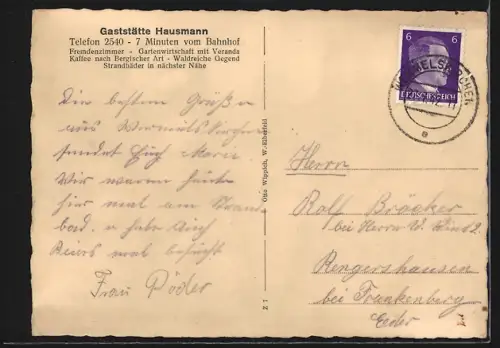 Gaststätte Hausmann
Telefon 2540 - 7 Minuten vom Bahnhof
Fremdenzimmer - Gartenwirtschaft mit Veranda
Kaffee nach Bergischer Art - Waldreiche Gegend
Strandbäder in nächster Nähe
Die besten Grüße
aus Wermelskirchen
sendet Euch Marie.
Wir waren heute
hier mal am
bad. u habe Dich
mal besucht
Frau Röder
Otto Wüppich, W.-Elberfeld
Z 7
6 6
DEUTSCHES REICH
WERMELSKIRCHEN
a
Herrn
Rolf Bröcker
bei Herrn W.
Rengershausen
bei Frankenberg
Eder